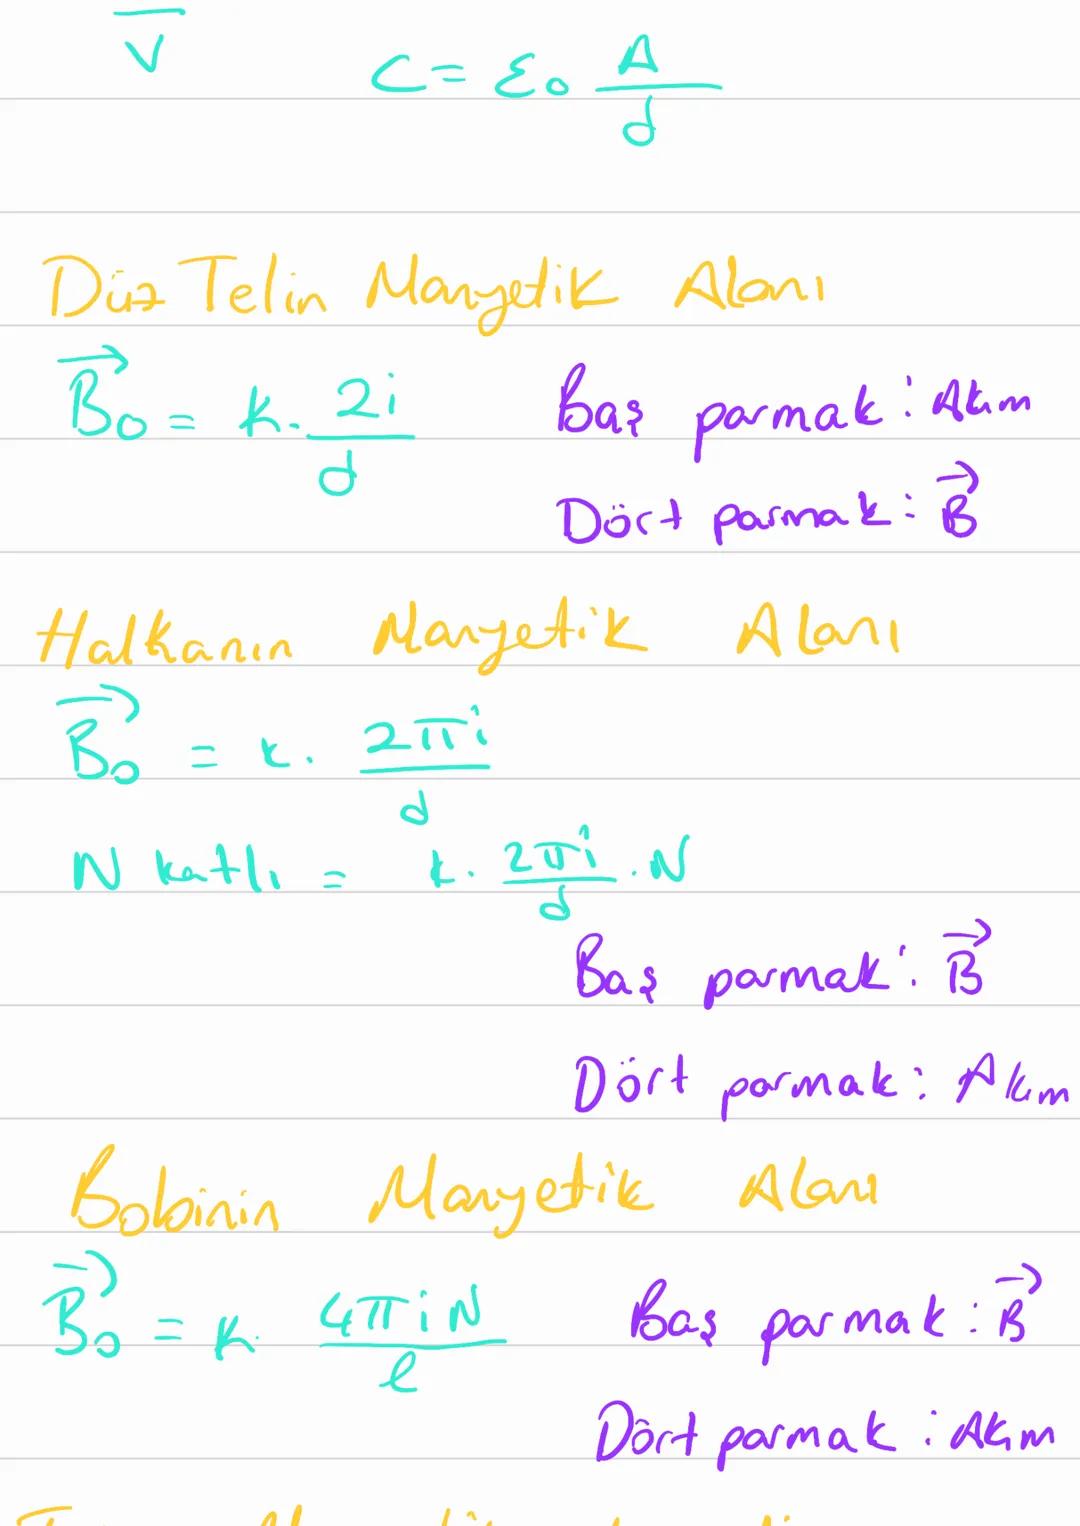 V
C = ε₀ A/d
Düz Telin Manyetik Alanı
B⃗o = k. 2i/d
Baş parmak: Akım
Dört parmak: B⃗
Halkanın Manyetik Alanı
B⃗o = k. 2πi/d
N katlı = k. 2πi/d .N
Baş parmak: B⃗
Dört parmak: Akım
Bobinin Manyetik Alanı
B⃗o = k. 4πiN/l
Baş parmak: B⃗
Dört parmak: Akım